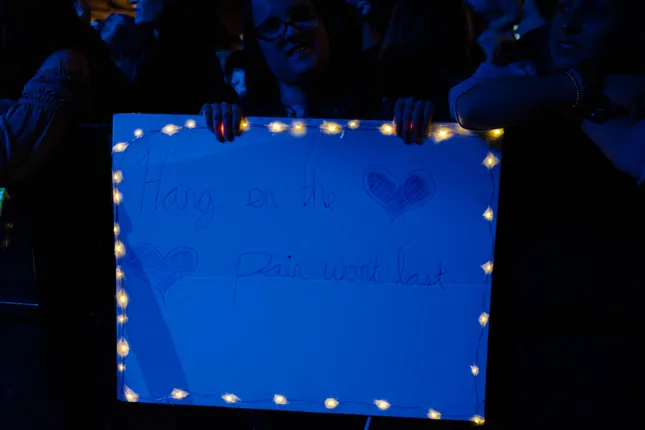 Hang on the
Pain wont last